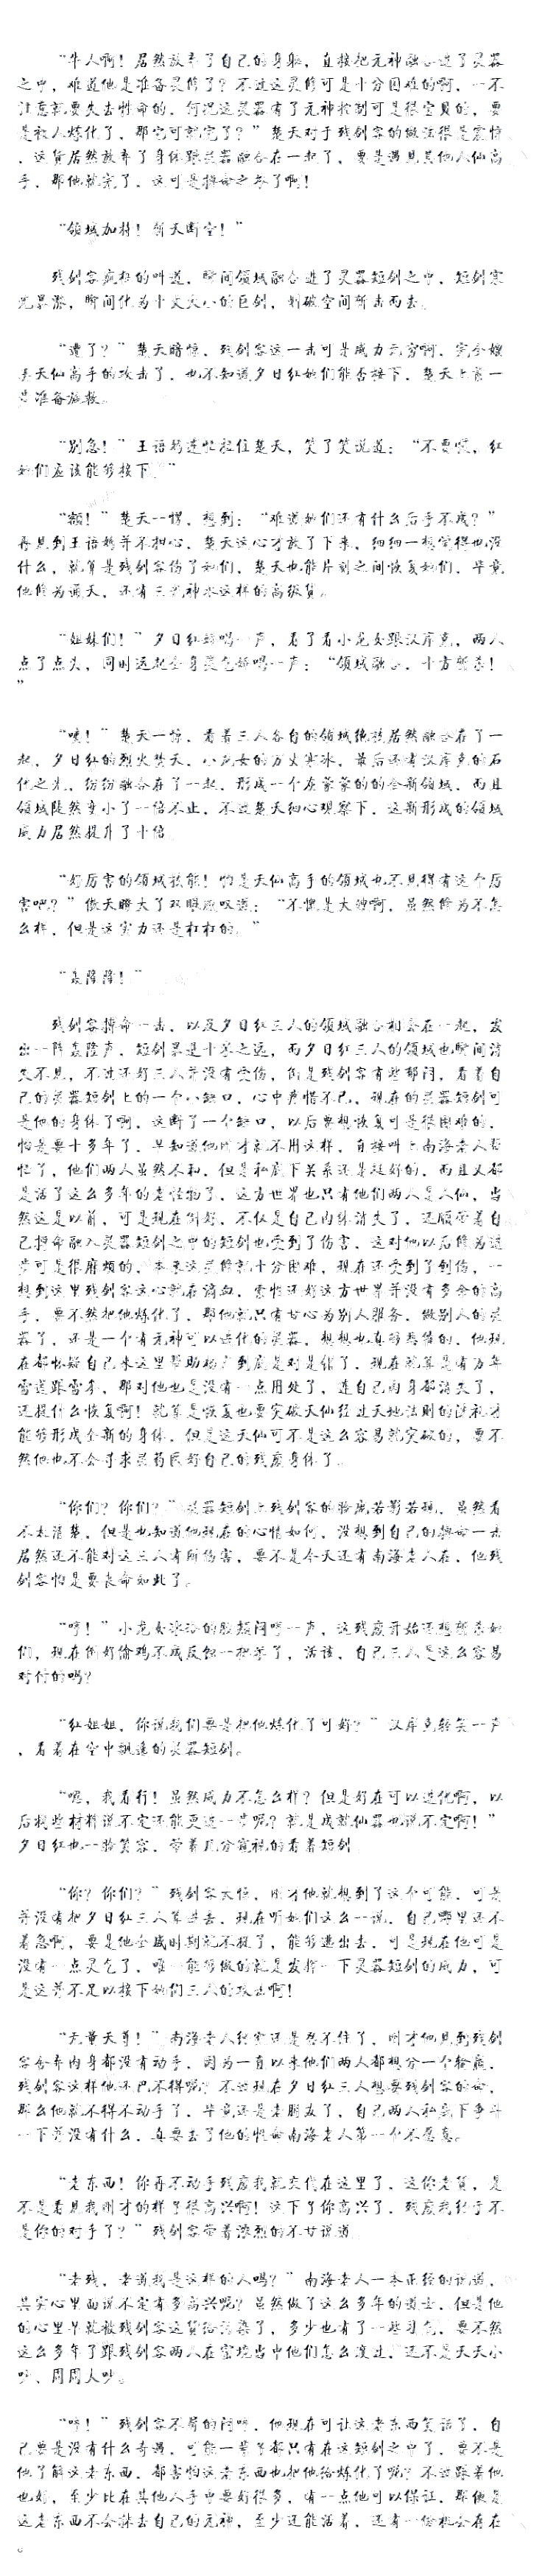 “牛人啊！居然放弃了自己的身躯，直接把元神融合进了灵器
之中，难道他是准备灵修了？不过这灵修可是十分困难的啊，一不
注意就要失去性命的，何况这灵器有了元神控制可是很宝贝的，要
是被人炼化了，那它可就完了？”楚天对于残剑客的做法很是震惊
，这货居然放弃了身体跟灵器融合在一起了，要是遇见其他人仙高
手，那他就完了，这可是拼命之举了啊！
“领域加持！斩天断空！”
残剑客疯狂的叫道，瞬间领域融合进了灵器短剑之中，短剑寒
光暴涨，瞬间化为十丈大小的巨剑，划破空间斩击而去。
“遭了？”楚天暗惊，残剑客这一击可是威力无穷啊，完全媲
美天仙高手的攻击了，也不知道夕日红她们能否接下，楚天上前一
步准备施救。
“别急！”王语嫣连忙拉住楚天，笑了笑说道：“不要慌，红
她们应该能够接下。”
“额！”楚天一愣，想到：“难道她们还有什么后手不成？”
再见到王语嫣并不担心，楚天这心才放了下来，细细一想觉得也没
什么，就算是残剑客伤了她们，楚天也能片刻之间恢复她们，毕竟
他修为通天，还有三光神水这样的高级货。
“姐妹们！”夕日红娇喝一声，看了看小龙女跟汉库克，两人
点了点头，同时运起全身灵气娇喝一声：“领域融合，十方斩杀！
”
“咦！”楚天一惊，看着三人各自的领域绝技居然融合在了一
起，夕日红的烈火焚天，小龙女的万丈寒冰，最后还有汉库克的石
化之光，纷纷融合在了一起，形成一个灰蒙蒙的的全新领域，而且
领域陡然变小了一倍不止，不过楚天细心观察下，这新形成的领域
威力居然提升了十倍。
“好厉害的领域技能！怕是天仙高手的领域也不见得有这个厉
害吧？”傲天瞪大了双眼感叹道：“不愧是大嫂啊，虽然修为不怎
么样，但是这实力还是杠杠的。”
“轰隆隆！”
残剑客拼命一击，以及夕日红三人的领域融合相会在一起，发
出一阵轰隆声，短剑暴退十米之远，而夕日红三人的领域也瞬间消
失不见，不过还好三人并没有受伤，倒是残剑客有些郁闷，看着自
己的灵器短剑上的一个小缺口，心中疼惜不已，现在的灵器短剑可
是他的身体了啊，这断了一个缺口，以后要想恢复可是很困难的，
怕是要十多年了，早知道他刚才就不用这样，直接叫上南海老人帮
忙了，他们两人虽然不和，但是私底下关系还是挺好的，而且又都
是活了这么多年的老怪物了，这方世界也只有他们两人是人仙，当
然这是以前，可是现在倒好，不仅是自己肉体消失了，还顺带着自
己拼命融入灵器短剑之中的短剑也受到了伤害，这对他以后修为进
步可是很麻烦的，本来这灵修就十分困难，现在还受到了到伤，一
想到这里残剑客这心就在滴血，索性还好这方世界并没有多余的高
手，要不然把他炼化了，那他就只有甘心为别人服务，做别人的灵
器了，还是一个有元神可以进化的灵器，想想也真够悲催的，他现
在都怀疑自己来这里帮助杨广到底是对是错了，现在就算是有万年
雪莲跟雪参，那对他也是没有一点用处了，连自己肉身都消失了，
还提什么恢复啊！就算是恢复也要突破天仙经过天地法则的洗礼才
能够形成全新的身体，但是这天仙可不是这么容易就突破的，要不
然他也不会寻求灵药医好自己的残废身体了。
“你们？你们？”灵器短剑上残剑客的脸庞若影若现，虽然看
不太清楚，但是也知道他现在的心情如何，没想到自己的拼命一击
居然还不能对这三人有所伤害，要不是今天还有南海老人在，他残
剑客怕是要丧命如此了。
“哼！”小龙女冰冷的脸颊闷哼一声，这残废开始还想斩杀她
们，现在倒好偷鸡不成反蚀一把米了，活该，自己三人是这么容易
对付的吗？
“红姐姐，你说我们要是把他炼化了可好？”汉库克轻笑一声
，看着在空中飘逸的灵器短剑。
“嗯，我看行！虽然威力不怎么样？但是好在可以进化啊，以
后找些材料说不定还能更进一步呢？就是成就仙器也说不定啊！”
夕日红也一脸笑容，带着几分藐视的看着短剑。
“你？你们？”残剑客大惊，刚才他就想到了这个可能，可是
并没有把夕日红三人算进去，现在听她们这么一说，自己哪里还不
着急啊，要是他全盛时期就不提了，能够逃出去，可是现在他可是
没有一点灵气了，唯一能够做的就是发挥一下灵器短剑的威力，可
是这并不足以接下她们三人的攻击啊！
“无量天尊！”南海老人终究还是忍不住了，刚才他见到残剑
客舍弃肉身都没有动手，因为一直以来他们两人都想分一个输赢，
残剑客这样他还巴不得呢？不过现在夕日红三人想要残剑客的命，
那么他就不得不动手了，毕竟还是老朋友了，自己两人私底下争斗
一下并没有什么，真要去了他的性命南海老人第一个不愿意。
“老东西！你再不动手残废我就交代在这里了，这你老货，是
不是看见我刚才的样子很高兴啊！这下了你高兴了，残废我终于不
是你的对手了？”残剑客带着浓烈的不甘说道。
“老残，老道我是这样的人吗？”南海老人一本正经的说道，
其实心里面说不定有多高兴呢？虽然做了这么多年的道士，但是他
的心里早就被残剑客这货给污染了，多少也有了一些习气，要不然
这么多年了跟残剑客两人在密境当中他们怎么渡过，还不是天天小
吵，周周大吵。
“哼！”残剑客不屑的闷哼，他现在可让这老东西笑话了，自
己要是没有什么奇遇，可能一辈子都只有在这短剑之中了，要不是
他了解这老东西，都害怕这老东西也把他给炼化了呢？不过跟着他
也好，至少比在其他人手中要好得多，有一点他可以保证，那便是
这老东西不会抹去自己的元神，至少还能活着，还有一份机会存在
。